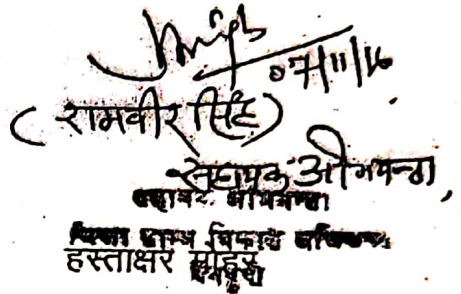 07/11/16
(रामवीर सिंह)
सहायक अभियन्ता,
सहायक अभियन्ता
जिला ग्राम्य विकास अभिकरण
हस्ताक्षर मोहर